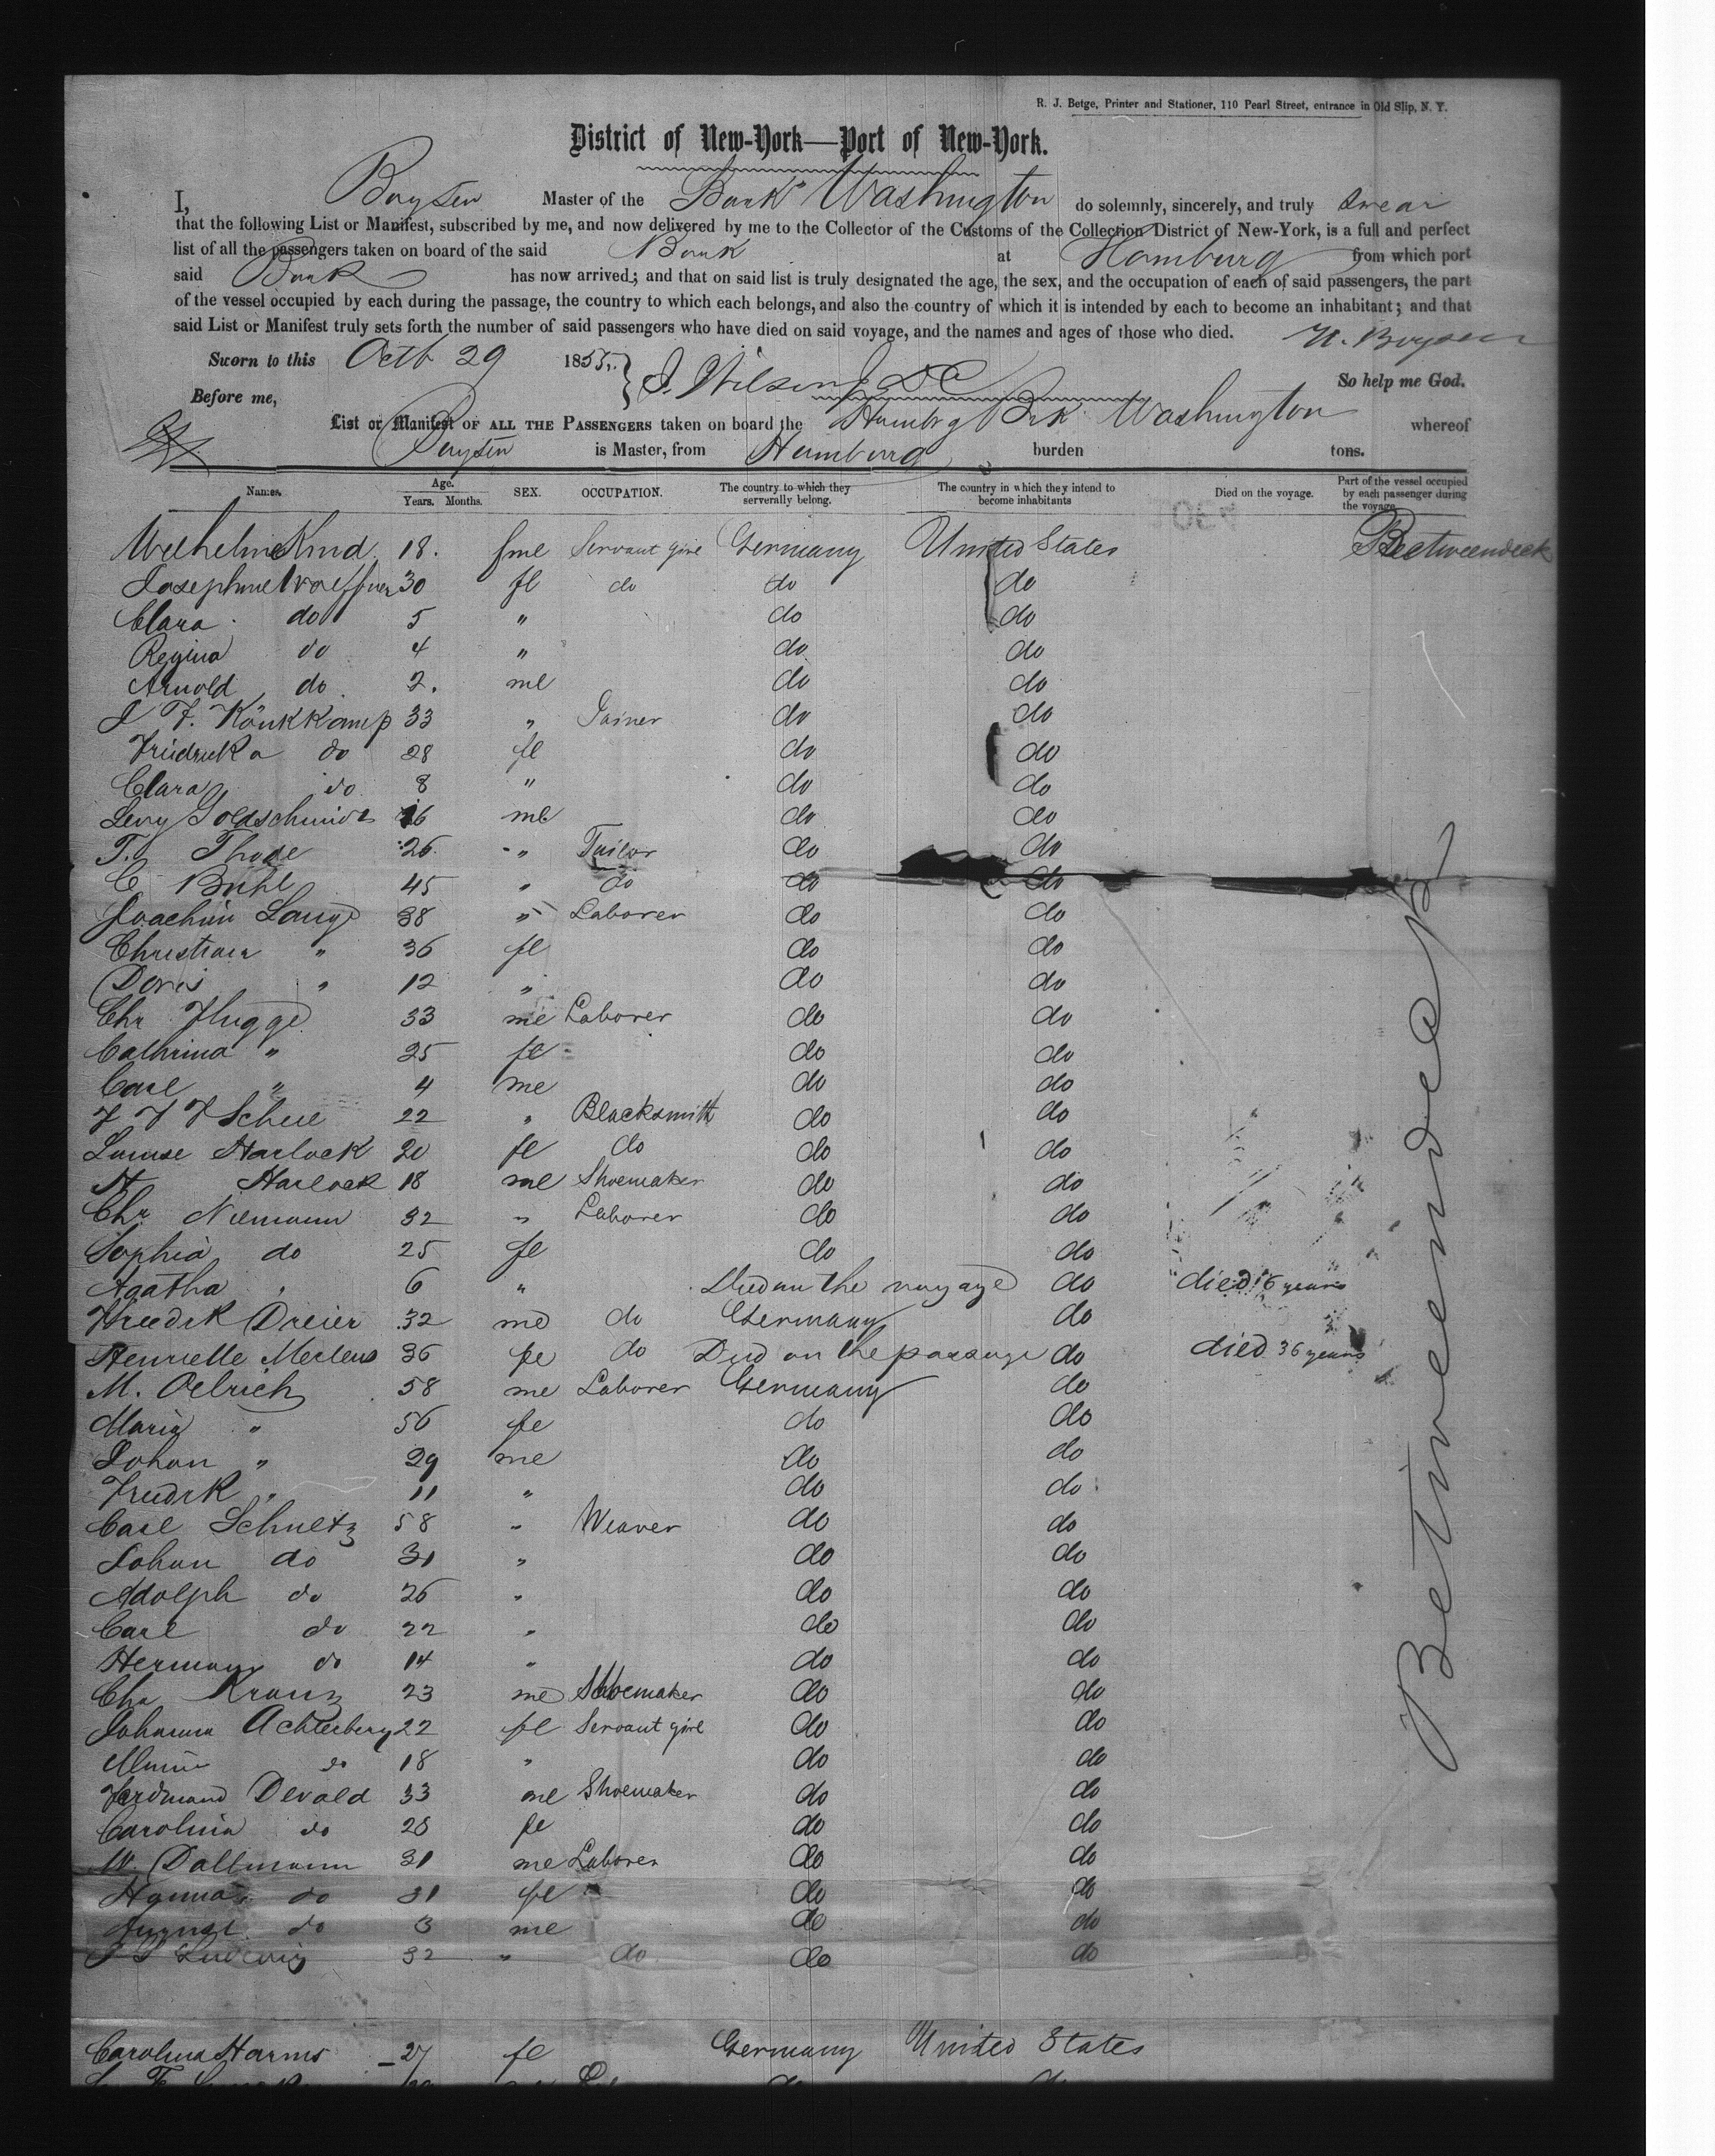 R. J. Betge, Printer and Stationer, 110 Pearl Street, entrance in Old Slip, N. Y.
District of New-York—Port of New-York.
I, Boysen Master of the Bark Washington do solemnly, sincerely, and truly swear
that the following List or Manifest, subscribed by me, and now delivered by me to the Collector of the Customs of the Collection District of New-York, is a full and perfect
list of all the passengers taken on board of the said Bark at Hamburg from which port
said Bark has now arrived; and that on said list is truly designated the age, the sex, and the occupation of each of said passengers, the part
of the vessel occupied by each during the passage, the country to which each belongs, and also the country of which it is intended by each to become an inhabitant; and that
said List or Manifest truly sets forth the number of said passengers who have died on said voyage, and the names and ages of those who died. H. Boysen
Sworn to this Octb 29 1855. J. Wilson So help me God.
Before me,
List or Manifest OF ALL THE PASSENGERS taken on board the Hambrg Brk Washington whereof
Boysen is Master, from Hamburg burden tons.
Names. Age. Years. Months. SEX. OCCUPATION. The country to which they serverally belong. The country in which they intend to become inhabitants Died on the voyage. Part of the vessel occupied by each passenger during the voyage
18. fml Servant girl Germany United States Beetweendeck
Josephine 30 fl do do do
Clara do 5 " do do
Regina do 4 " do do
Arnold do 2. ml do do
J F. Könkkamp 33 " Joiner do do
Friedrika do 28 fl do do
Clara do 8 " do do
Levy Goldschmidt 16 ml do do
T. Thode 26 " Tailor do do
C Buhl 45 " do do do
Joachim Lange 38 " Laborer do do
Christian " 36 fl do do
Doris " 12 " do do
Chr Flugge 33 me Laborer do do
Cathrina " 25 fe do do
Carl " 4 me do do
22 " Blacksmith do do
Louise Harlock 20 fe do do do
H Harlock 18 ml Shoemaker do do
Chr Niemann 32 " Laborer do do
Sophia do 25 fl do do
Agatha " 6 " Died on the voyage do died 6 years
Friedrk Dreier 32 me do Germany do
Henrielle Mertens 36 fe do Died on the passage do died 36 years
M. Oelrich 58 me Laborer Germany do
Maria " 56 fe do do
Johan " 29 me do do
Friedrk " 11 " do do
Carl Schultz 58 " Weaver do do
Johan do 31 " do do
Adolph do 26 " do do
Carl do 22 " do do
Herman do 14 " do do
Chr Kranz 23 me Shoemaker do do
Johanna Achterberg 22 fl Servant girl do do
do 18 " do do
Ferdinand Devald 33 ml Shoemaker do do
Carolina do 28 fe do do
W. Dallmann 31 me Laborer do do
Hanna do 31 fe do do
August do 3 me do do
Ludewig 32 " do do do
Betweendeck
Carolina Harms 27 fl Germany United States